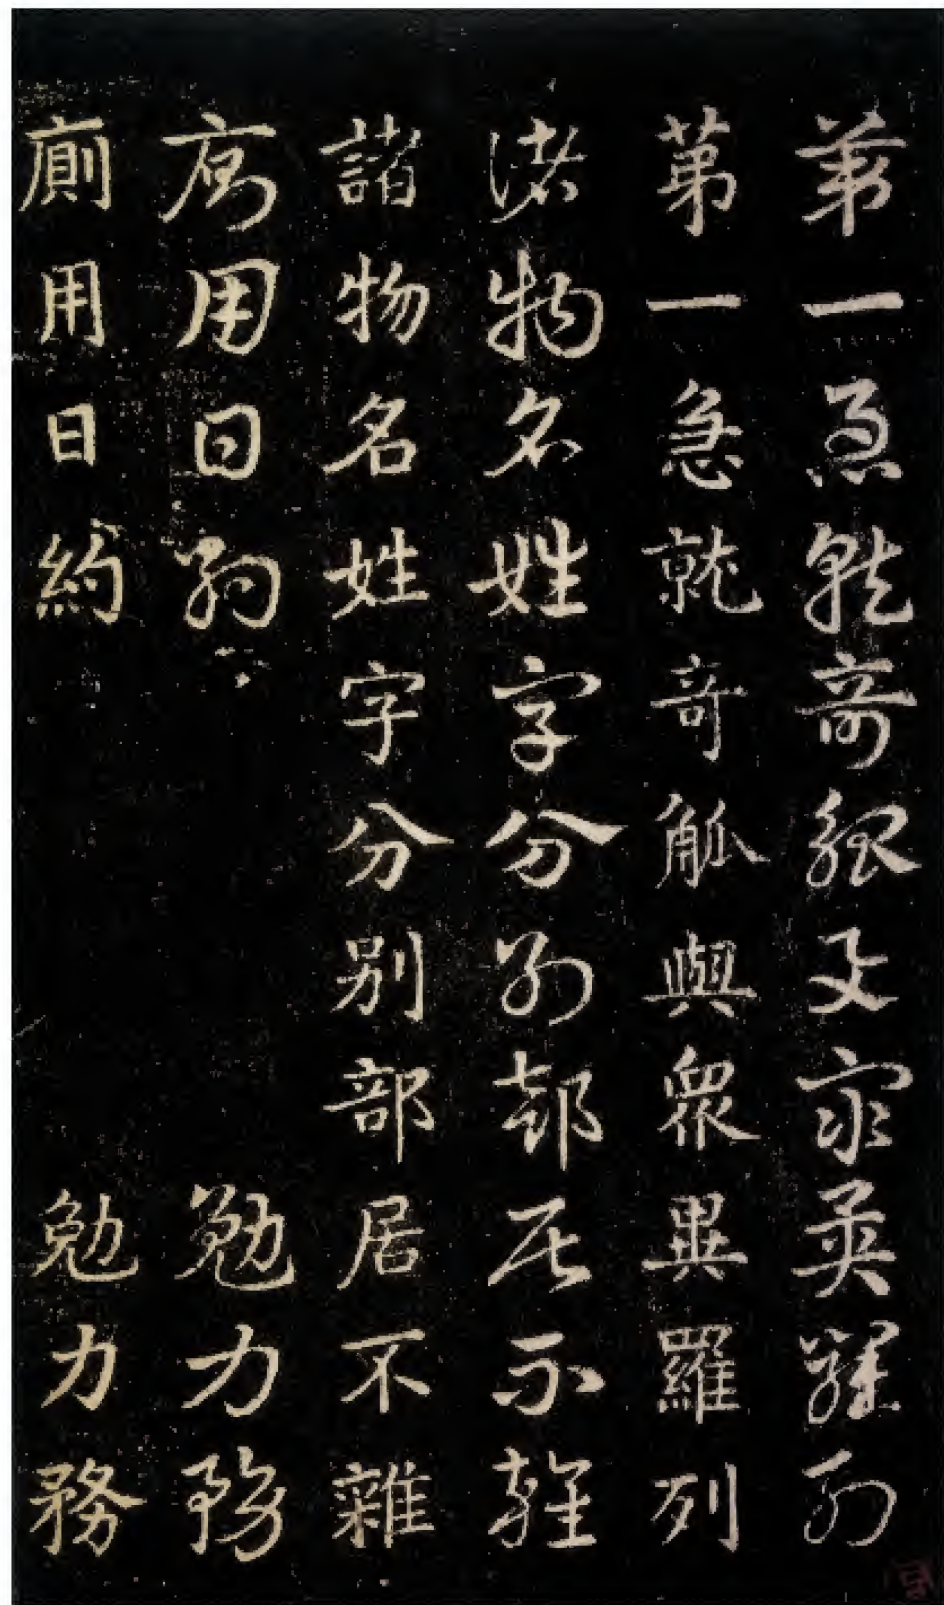 第一急就奇觚與衆異羅列
第一急就奇觚與衆異羅列
諸物名姓字分別部居不雜
諸物名姓字分別部居不雜
廁用日約勉力務
廁用日約勉力務